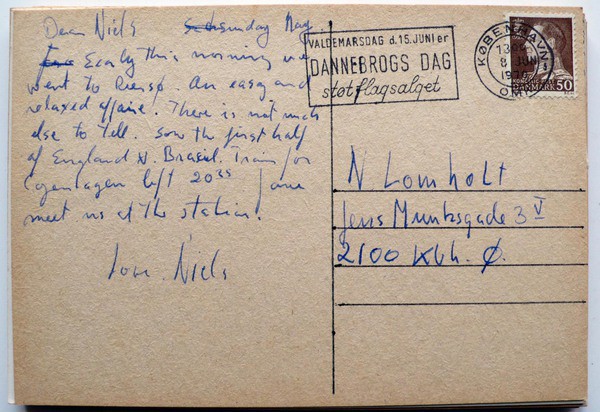 Dear Niels Sunday May
Early this morning we
went to Rersø. An easy and
relaxed affaire. There is not much
else to tell. Saw the first half
of England v. Brasil. Train for
Copenhagen left 20³⁵ Jane
meet us at the station.
Love Niels
VALDEMARSDAG d. 15. JUNI er
DANNEBROGS DAG
støt flagsalget
KØBENHAVN
OMK
DANMARK 50
N Lomholt
Jens Munksgade 3 V
2100 Kbh. Ø.